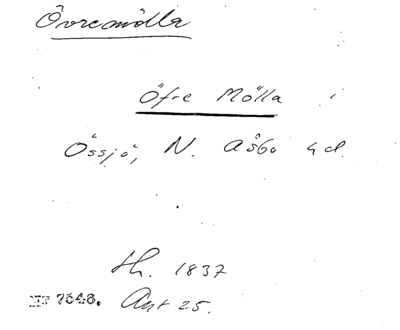 Övremölla
Öfre Mölla
Össjö, N. Åsbo hd.
Hh. 1837
7548. Ant 25.